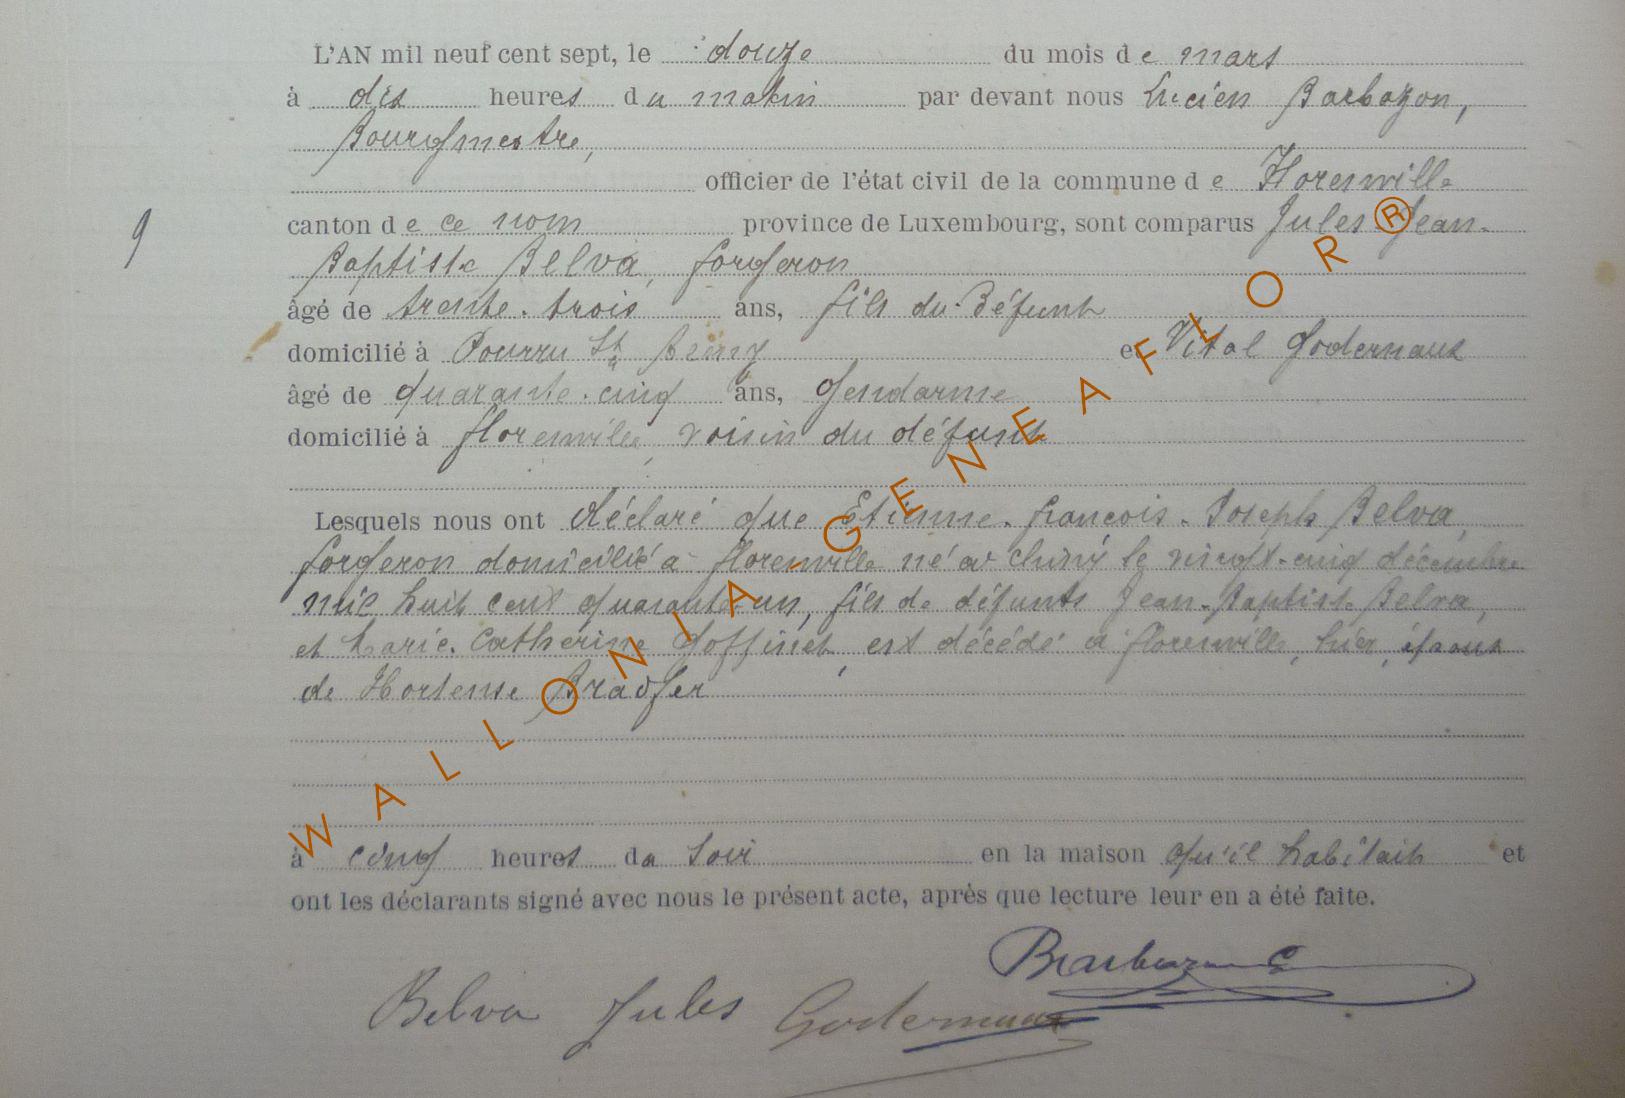 L'AN mil neuf cent sept, le douze du mois de mars
à dix heures du matin par devant nous Lucien Barbazon,
Bourgmestre,
officier de l'état civil de la commune de Florenville
canton de ce nom province de Luxembourg, sont comparus Jules Jean-
Baptiste Belva, forgeron
âgé de trente-trois ans, fils du défunt
domicilié à Pourru St Remy et Vital Godernaux
âgé de quarante-cinq ans, gendarme
domicilié à Florenville, voisin du défunt
9
Lesquels nous ont déclaré que Etienne-François-Joseph Belva,
forgeron domicilié à Florenville né à Chiny le vingt-cinq décembre
mil huit cent quarante-un, fils de défunts Jean-Baptiste Belva,
et Marie-Catherine Goffinet, est décédé à Florenville, hier, époux
de Hortense Bradfer
à cinq heures du soir en la maison qu'il habitait et
ont les déclarants signé avec nous le présent acte, après que lecture leur en a été faite.
Barbazon
Belva Jules Godernaux
WALLONIA-GENEAFLOR®